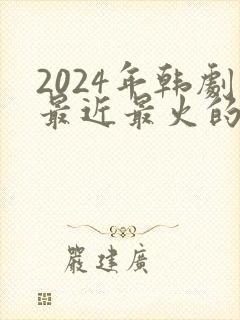 2024年韩劇
最近最火的
嚴建廣